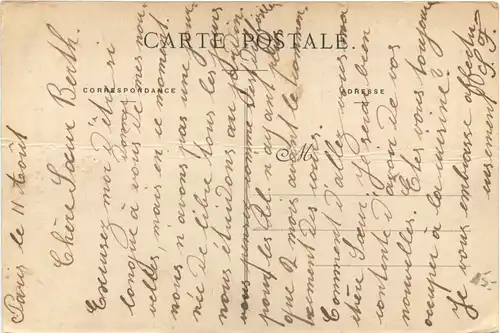 CARTE POSTALE.
CORRESPONDANCE
ADRESSE
M
Paris le 11 Août
Chère Sœur Berth.
Excusez moi d'être si
longue à vous donner nos nou
velles, mais en ce moment
nous n'avons pas une jour
née de libre tous les jours
nous étudions au
pour les
que 2 mois avant le commen
cement des cours.
Comment allez vous ma
chère Sœur. Je serai bien
contente d'avoir de vos
nouvelles. Etes vous toujours
occuper à la cuisine?
Je vous embrasse affectu
eusement
15-